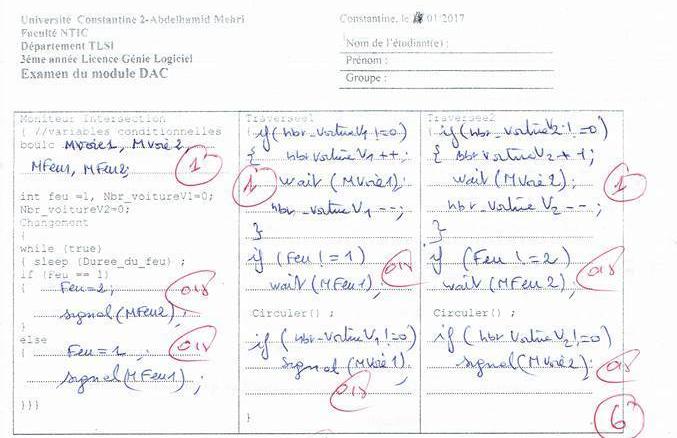 Université Constantine 2-Abdelhamid Mehri
Faculté NTIC
Département TLSI
3éme année Licence Génie Logiciel
Examen du module DAC
Constantine, le 01/2017
Nom de l'étudiant(e) :
Prénom :
Groupe :
Moniteur Intersection
{ //variables conditionnelles
boulc Mvoie1, Mvoie2,
MFeu1, MFeu2;
1
int feu =1, Nbr_voitureV1=0;
Nbr_voitureV2=0;
Changement
{
while (true)
{ sleep (Duree_du_feu) ;
if (Feu == 1)
{ Feu=2;
0,5
signal(MFeu2);
}
else
{ Feu=1 ;
0,5
signal(MFeu1);
}}}
Traversee1
{ if(nbr_voitureV1 !=0)
{ nbr voitureV1 ++;
1
wait (MVoie1);
nbr_voitureV1 --;
}
if (Feu != 1)
0,5
wait(MFeu1);
Circuler() ;
if (nbr_voitureV1 !=0)
signal (MVoie1);
0,5
}
Traversee2
{ if(nbr_voitureV2 != 0)
{ nbr voitureV2 ++;
wait (MVoie2);
1
nbr_voiture V2 --;
}
if (Feu != 2)
0,5
wait(MFeu2);
Circuler() ;
if (nbr_voitureV2 !=0)
signal(MVoie2);
0,5
6